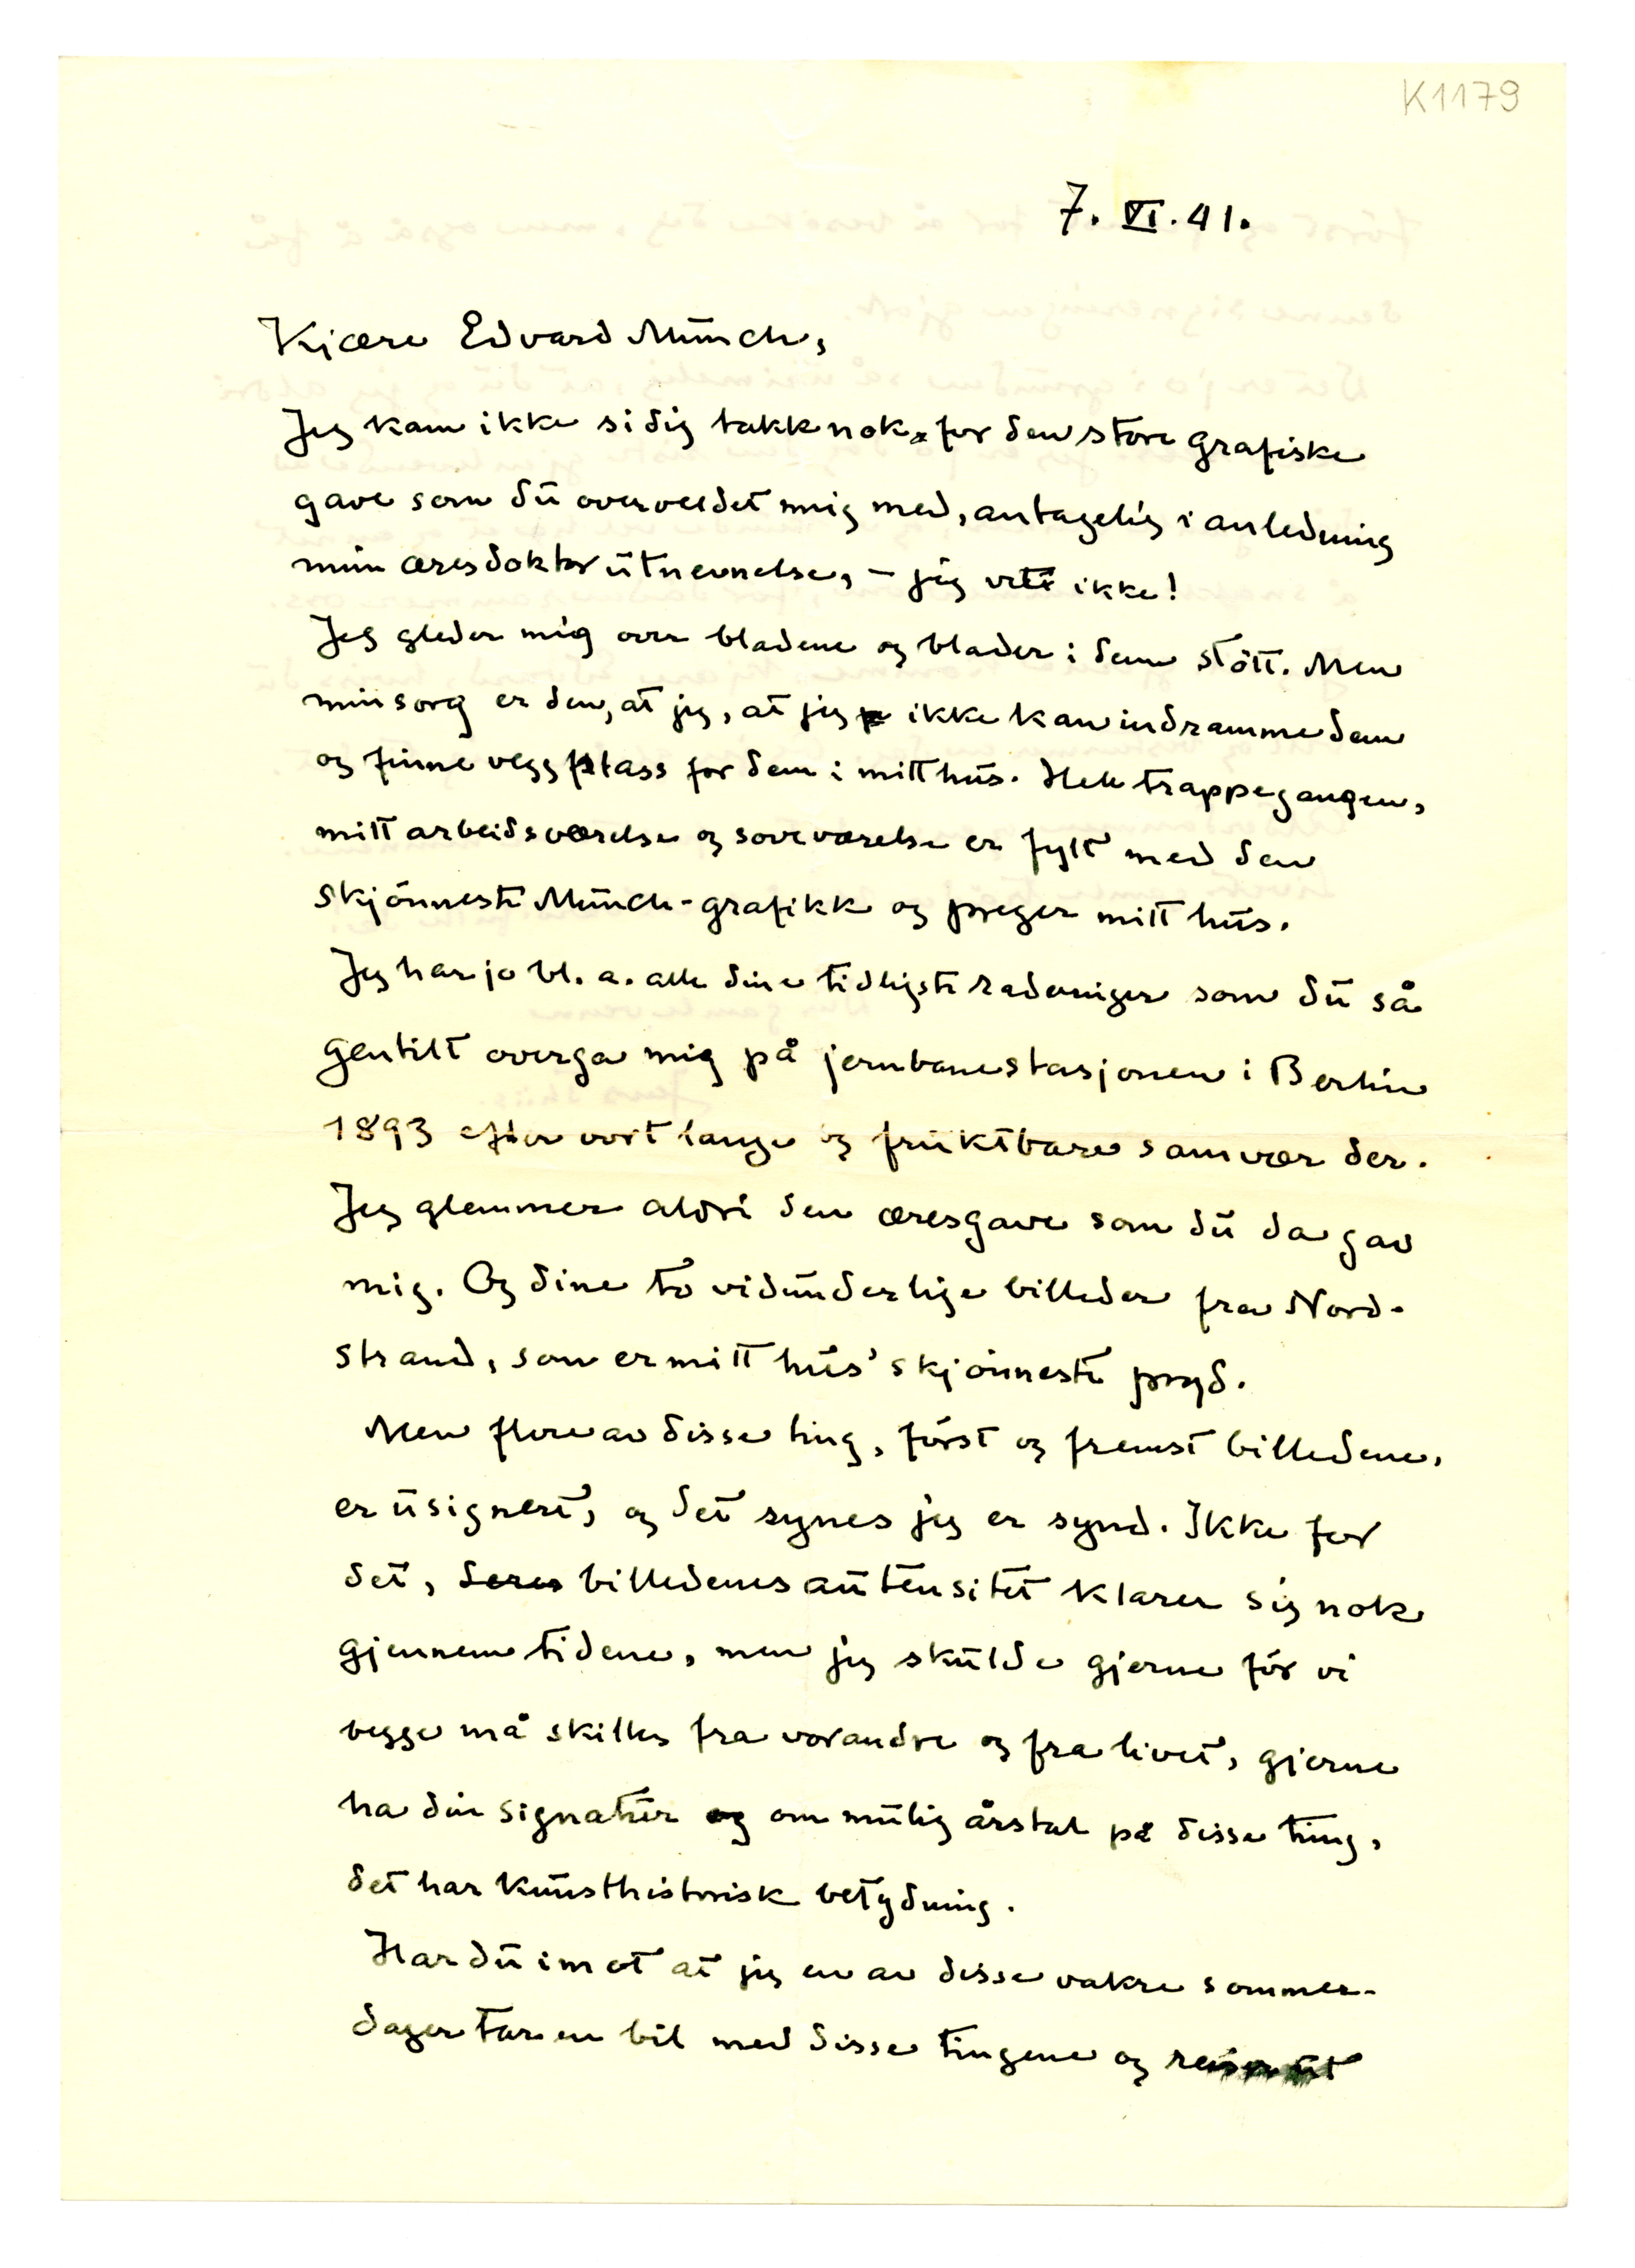 K1179
7. VI. 41.
Kjære Edvard Munch,
Jeg kan ikke si dig takk nok for den store grafiske
gave som du overveldet mig med, antagelig i anledning
min æresdoktorutnevnelse, – jeg vet ikke!
Jeg gleder mig over bladene og blader i dem støtt. Men
min sorg er den, at jeg, at jeg ikke kan indramme dem
og finne veggplass for dem i mitt hus. Hele trappegangen,
mitt arbeidsværelse og soveværelse er fylt med den
skjönneste Munch-grafikk og preger mitt hus.
Jeg har jo bl. a. alle dine tidligste raderinger som du så
gentilt overga mig på jernbanestasjonen i Berlin
1893 efter vort lange og fruktbare samvær der.
Jeg glemmer aldri den æresgave som du da gav
mig. Og dine to vidunderlige billeder fra Nord-
strand, som er mitt hus' skjönneste pryd.
Men flere av disse ting, först og fremst billedene,
er usignert, og det synes jeg er synd. Ikke for
det, deres billedenes autensitet klarer sig nok
gjennem tidene, men jeg skulde gjerne för vi
begge må skilles fra vorandre og fra livet, gjerne
ha din signatur og om mulig årstal på disse ting,
det har kunsthistorisk betydning.
Har du imot at jeg en av disse vakre sommer-
dager tar en bil med disse tingene og reiser ut